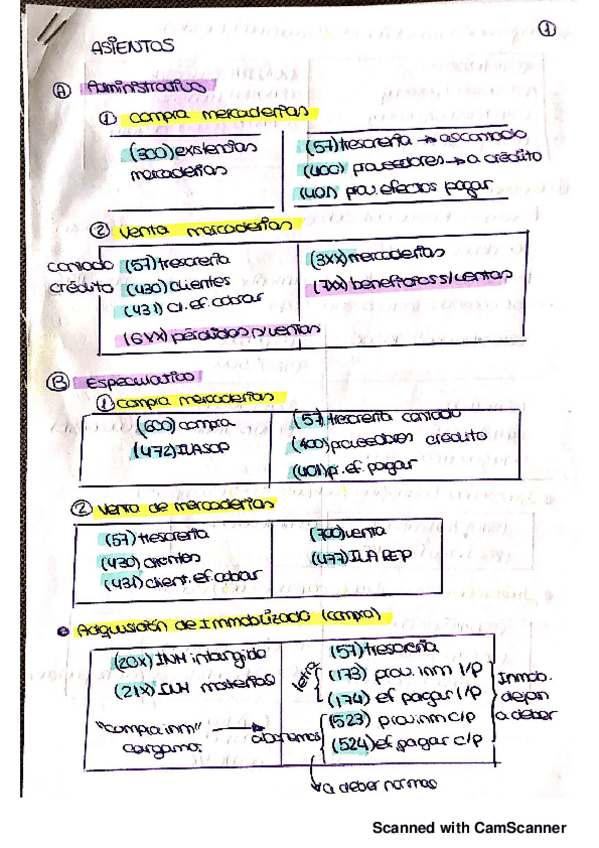 ①
ASIENTOS
Ⓐ Administrativo
① compra mercaderías
(300) existencias mercaderías
(57) tresorería → as contado
(400) proveedores → a crédito
(401) prov. efectos pagar
② Venta mercaderías
contado (57) tresorería
crédito (430) clientes
(431) cl. ef. cobrar
(6XX) pérdidas s/ventas
(3XX) mercaderías
(7XX) beneficios s/ventas
Ⓑ Especulativo
① compra mercaderías
(600) compra
(472) IVA SOP
(57) tresorería contado
(400) proveedores crédito
(401) p. ef. pagar
② Venta de mercaderías
(57) tresorería
(430) clientes
(431) client. ef. cobrar
(700) venta
(477) IVA REP
Adquisición de Inmobilizado (compra)
(20X) INM intangido
(21X) INM materias
"compra inm" → abonamos
cargamo.
(57) tresorería
letra
(173) prov. inm l/p
(174) ef pagar l/p
(523) prov. inm c/p
(524) ef. pagar c/p
Inmob.
dejan
a deber
a deber normas
Scanned with CamScanner